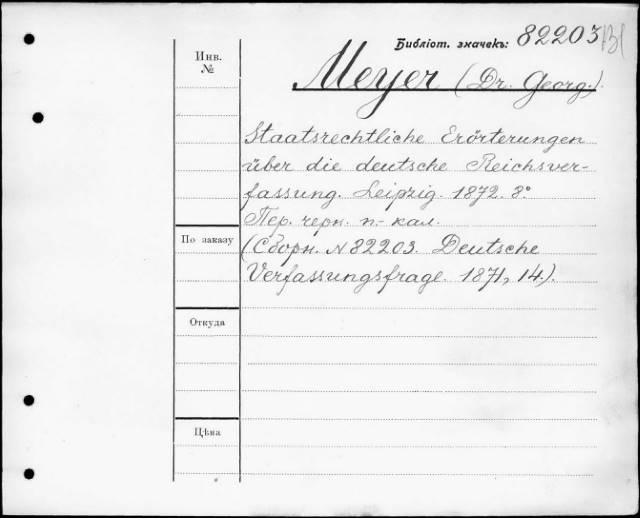 Библіот. значекъ: 82203
Инв.
№
Meyer (Dr. Georg.).
Staatsrechtliche Erörterungen
über die deutsche Reichsver-
fassung. Leipzig. 1872. 8°
Пер. черн. п.- кал.
По заказу
(Сборн. № 82203. Deutsche
Verfassungsfrage. 1871, 14.).
Откуда
Цѣна